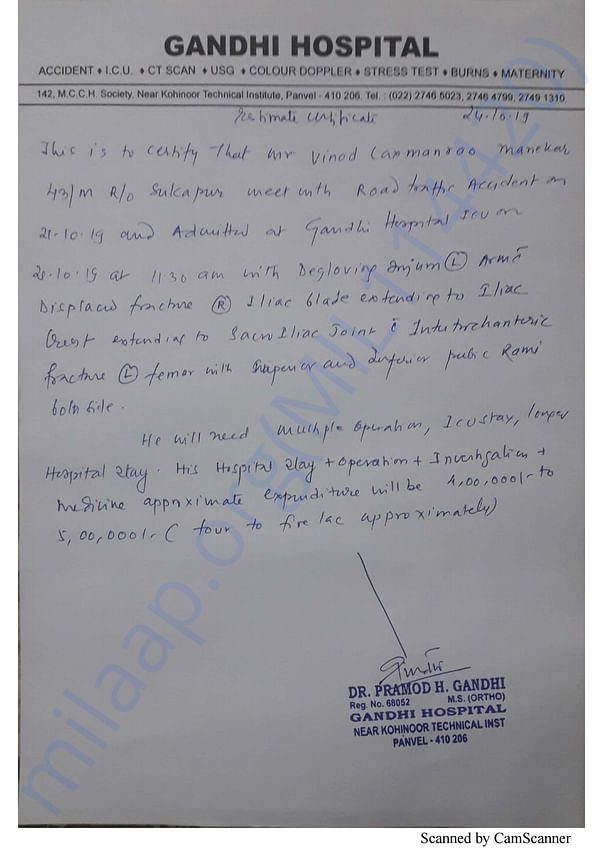 GANDHI HOSPITAL
ACCIDENT ♦ I.C.U. ♦ CT SCAN ♦ USG ♦ COLOUR DOPPLER ♦ STRESS TEST ♦ BURNS ♦ MATERNITY
142, M.C.C.H. Society, Near Kohinoor Technical Institute, Panvel - 410 206. Tel. : (022) 2746 5023, 2746 4799, 2749 1310
Estimate certificate 24.10.19
This is to certify that mr Vinod Laxmanrao Manekar
43/M R/o Sukapur meet with Road traffic Accident on
21-10-19 and Admitted at Gandhi Hospital ICU on
at 11:30 am with Degloving Injury (L) Arm c̄
Displaced fracture (R) Iliac blade extending to Iliac
Crest extending to Sacro Iliac Joint c̄ Intertrochanteric
fracture (L) femor with Superior and Inferior pubic Rami
both side.
He will need multiple operation, Icu stay, longer
Hospital stay. His Hospital stay + operation + Investigation +
medicine approximate expenditure will be 4,00,000/- to
5,00,000/- ( four to five lac approximately)
DR. PRAMOD H. GANDHI
Reg. No. 68052 M.S. (ORTHO)
GANDHI HOSPITAL
NEAR KOHINOOR TECHNICAL INST
PANVEL - 410 206
milaap.org(MIL114429)
Scanned by CamScanner